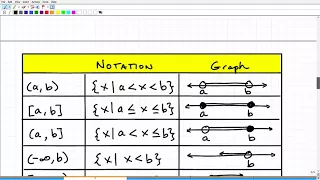 NOTATION Graph
(a, b) {x| a < x < b} a b
[a, b] {x| a ≤ x ≤ b} a b
(a, b] {x| a < x ≤ b} a b
(-∞, b) {x| x < b} b